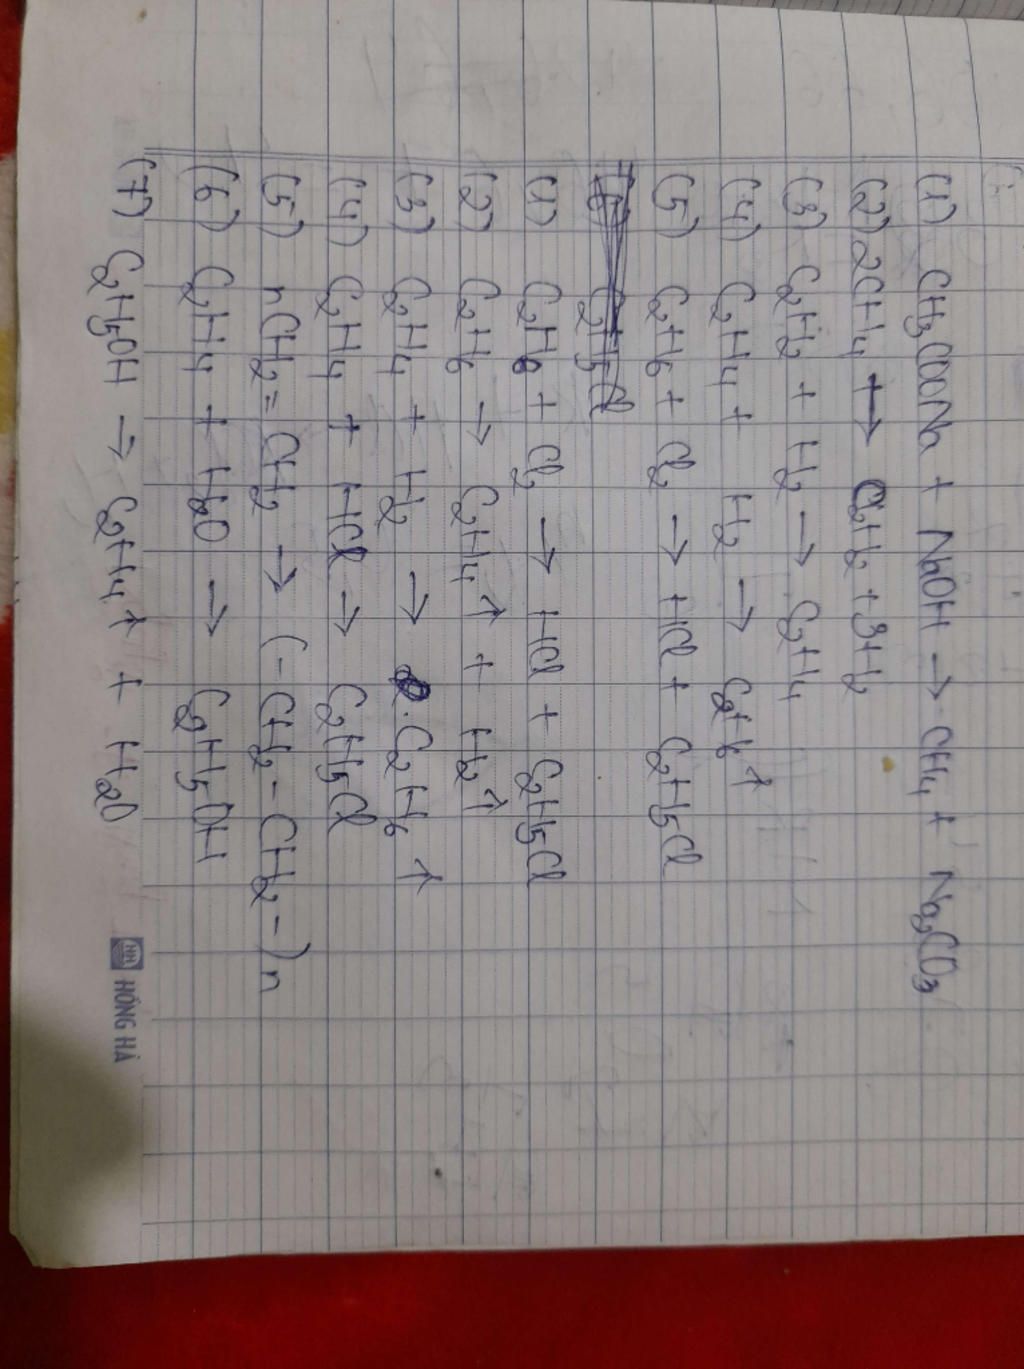 (1) CH3COONa + NaOH → CH4 + Na2CO3
(2) 2CH4 → C2H2 + 3H2
(3) C2H2 + H2 → C2H4
(4) C2H4 + H2 → C2H6 ↑
(5) C2H6 + Cl2 → HCl + C2H5Cl
C2H5Cl
(1) C2H6 + Cl2 → HCl + C2H5Cl
(2) C2H6 → C2H4 ↑ + H2 ↑
(3) C2H4 + H2 → C2H6 ↑
(4) C2H4 + HCl → C2H5Cl
(5) nCH2 = CH2 → (- CH2 - CH2 -) n
(6) C2H4 + H2O → C2H5OH
(7) C2H5OH → C2H4 ↑ + H2O
HỒNG HÀ